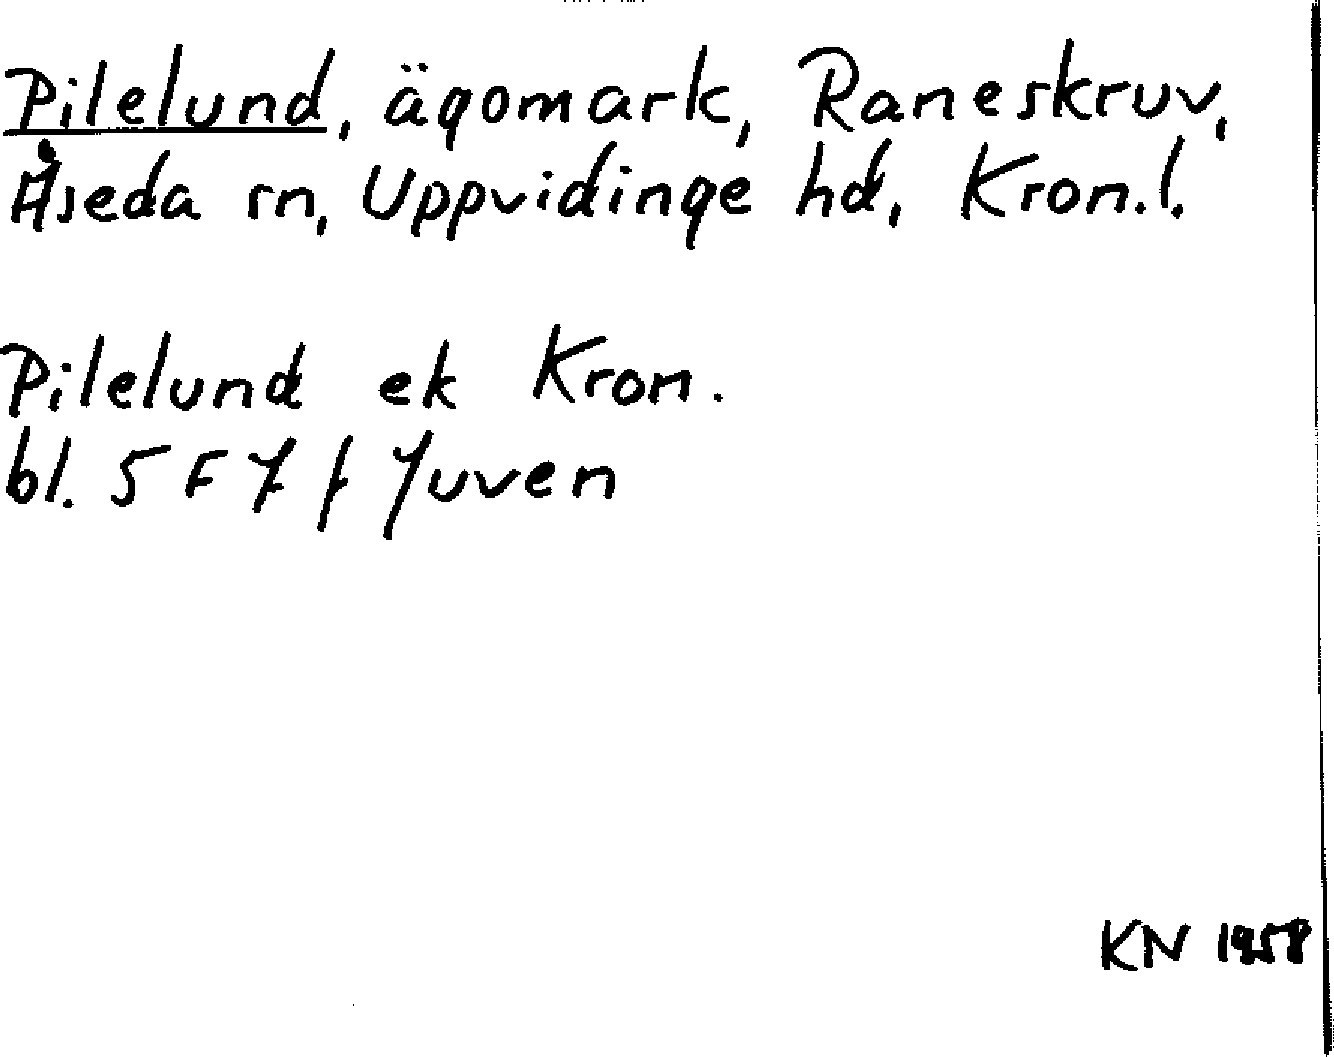 Pilelund, ägomark, Raneskruv,
Åseda sn, Uppvidinge hd, Kron.l.
Pilelund ek Kron.
bl. 5 F 7 f Juven
KN 1958